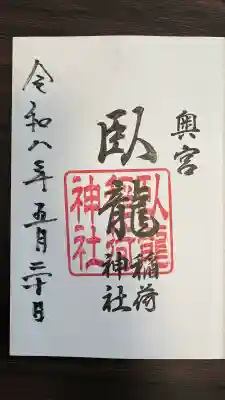 奥宮
臥龍稲荷神社
令和八年五月二十日
臥龍
稲荷
神社